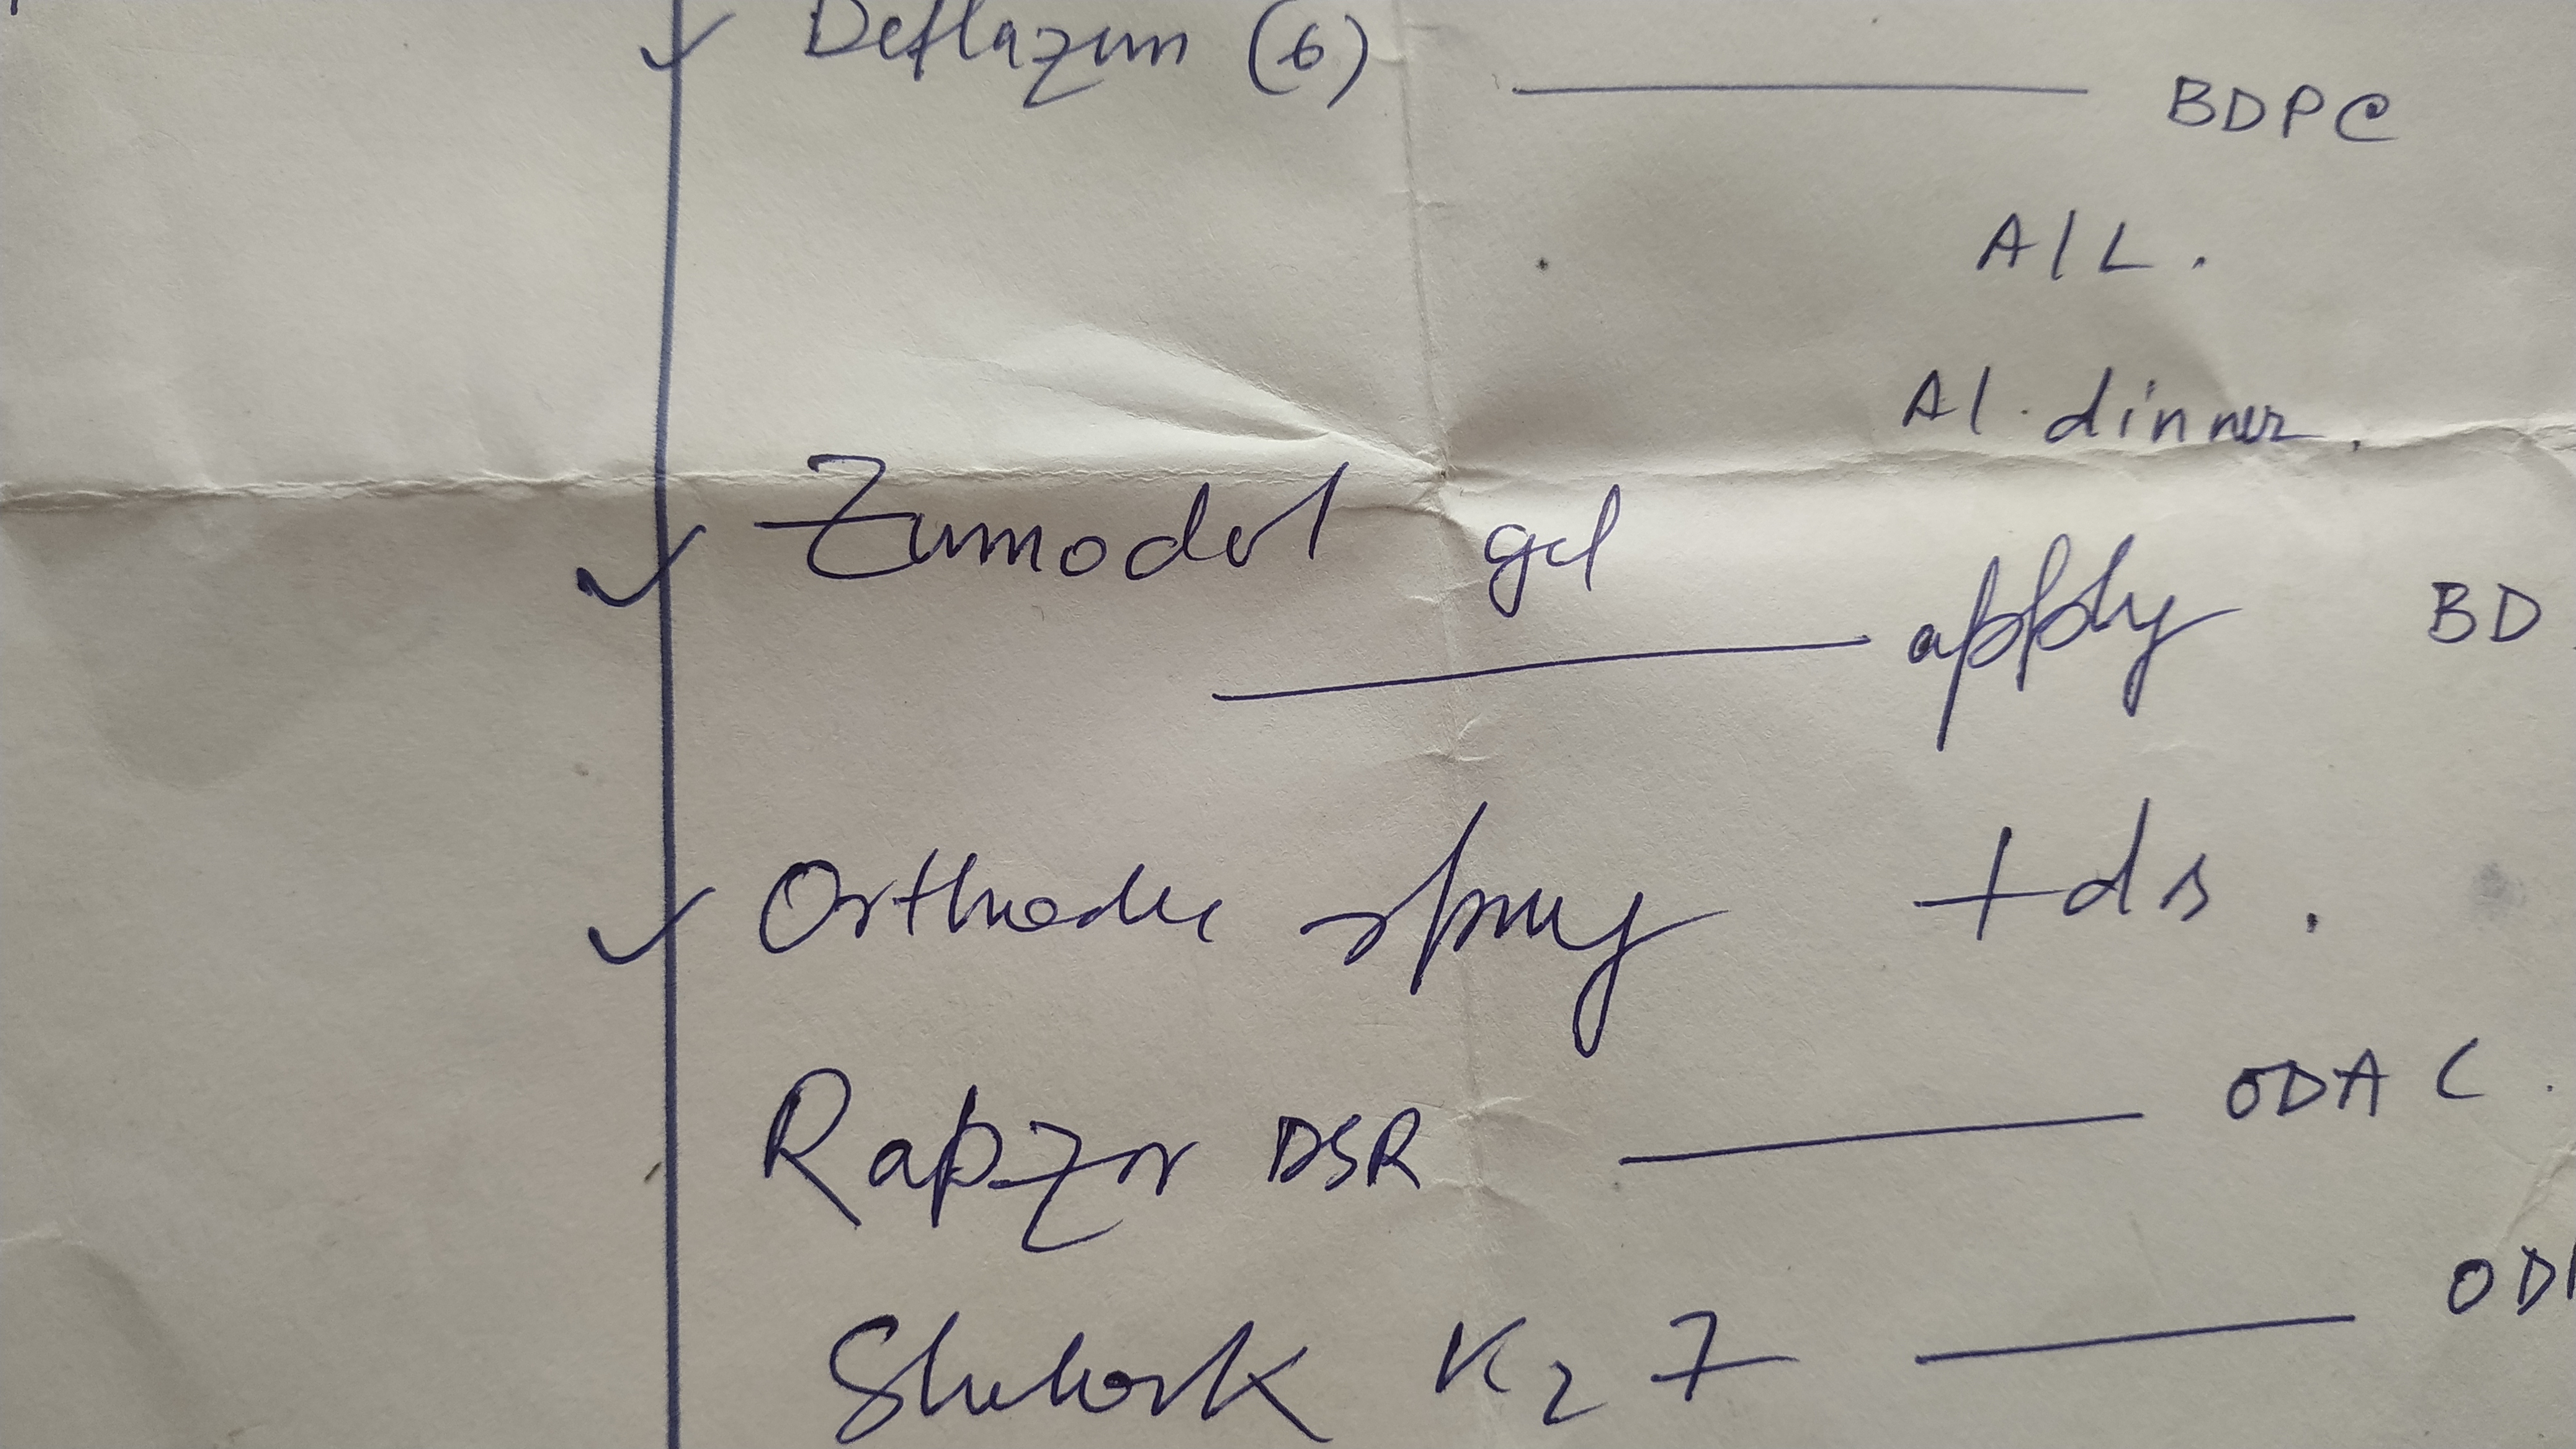 Deflazen (6) BDPC
A/L.
A/. dinner.
Zumodol gel
apply BD
Orthoede spray tds.
Rapzor DSR ODAC
K2 7 OD